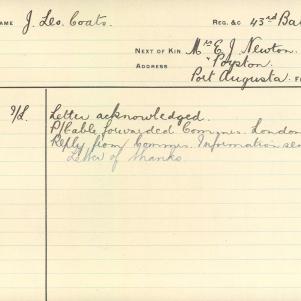 NAME J. Leo. Coats. REG. &C 43rd Bat
NEXT OF KIN Mrs E. J. Newton.
ADDRESS "Poyston.
Port Augusta.
9/L. Letter acknowledged.
P/Cable forwarded Commis. London
Reply from Commis. Information sen
Letter of thanks.